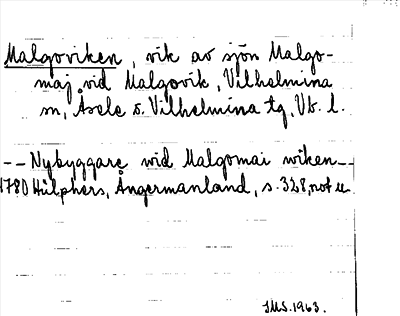 Malgoviken, vik av sjön Malgo-
maj vid Malgovik, Vilhelmina
sn, Åsele o. Vilhelmina tg, Vb. l.
-- Nybyggare vid Malgomai wiken --
1780 Hülphers, Ångermanland, s. 328, not u.
JMS. 1963.